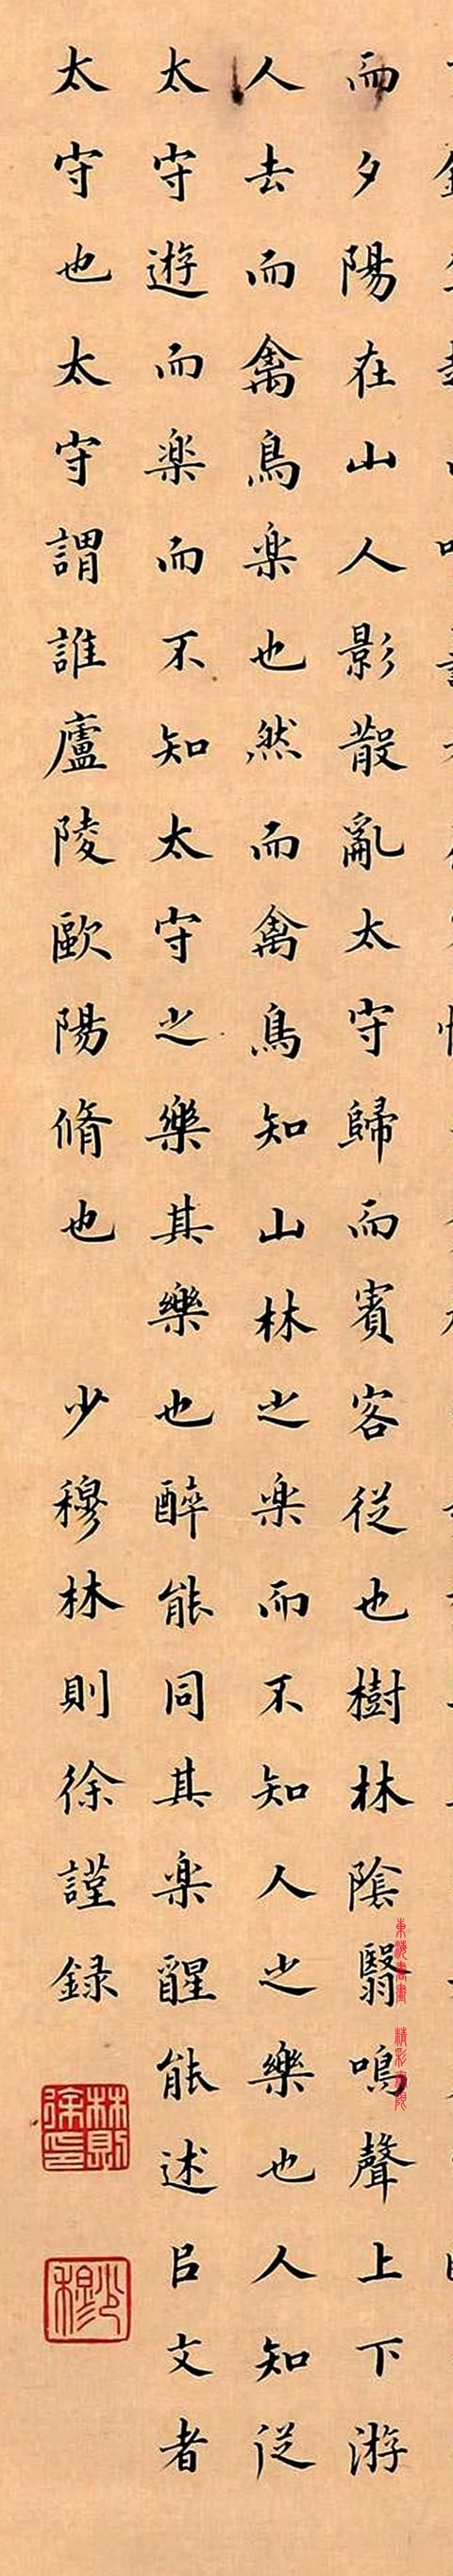 而夕陽在山人影散亂太守歸而賓客從也樹林陰翳鳴聲上下游
人去而禽鳥楽也然而禽鳥知山林之楽而不知人之樂也人知従
太守遊而楽而不知太守之樂其樂也醉能同其楽醒能述㠯文者
太守也太守謂誰廬陵歐陽脩也 少穆林則徐謹録
林則徐印
少穆
東海書畫 精彩